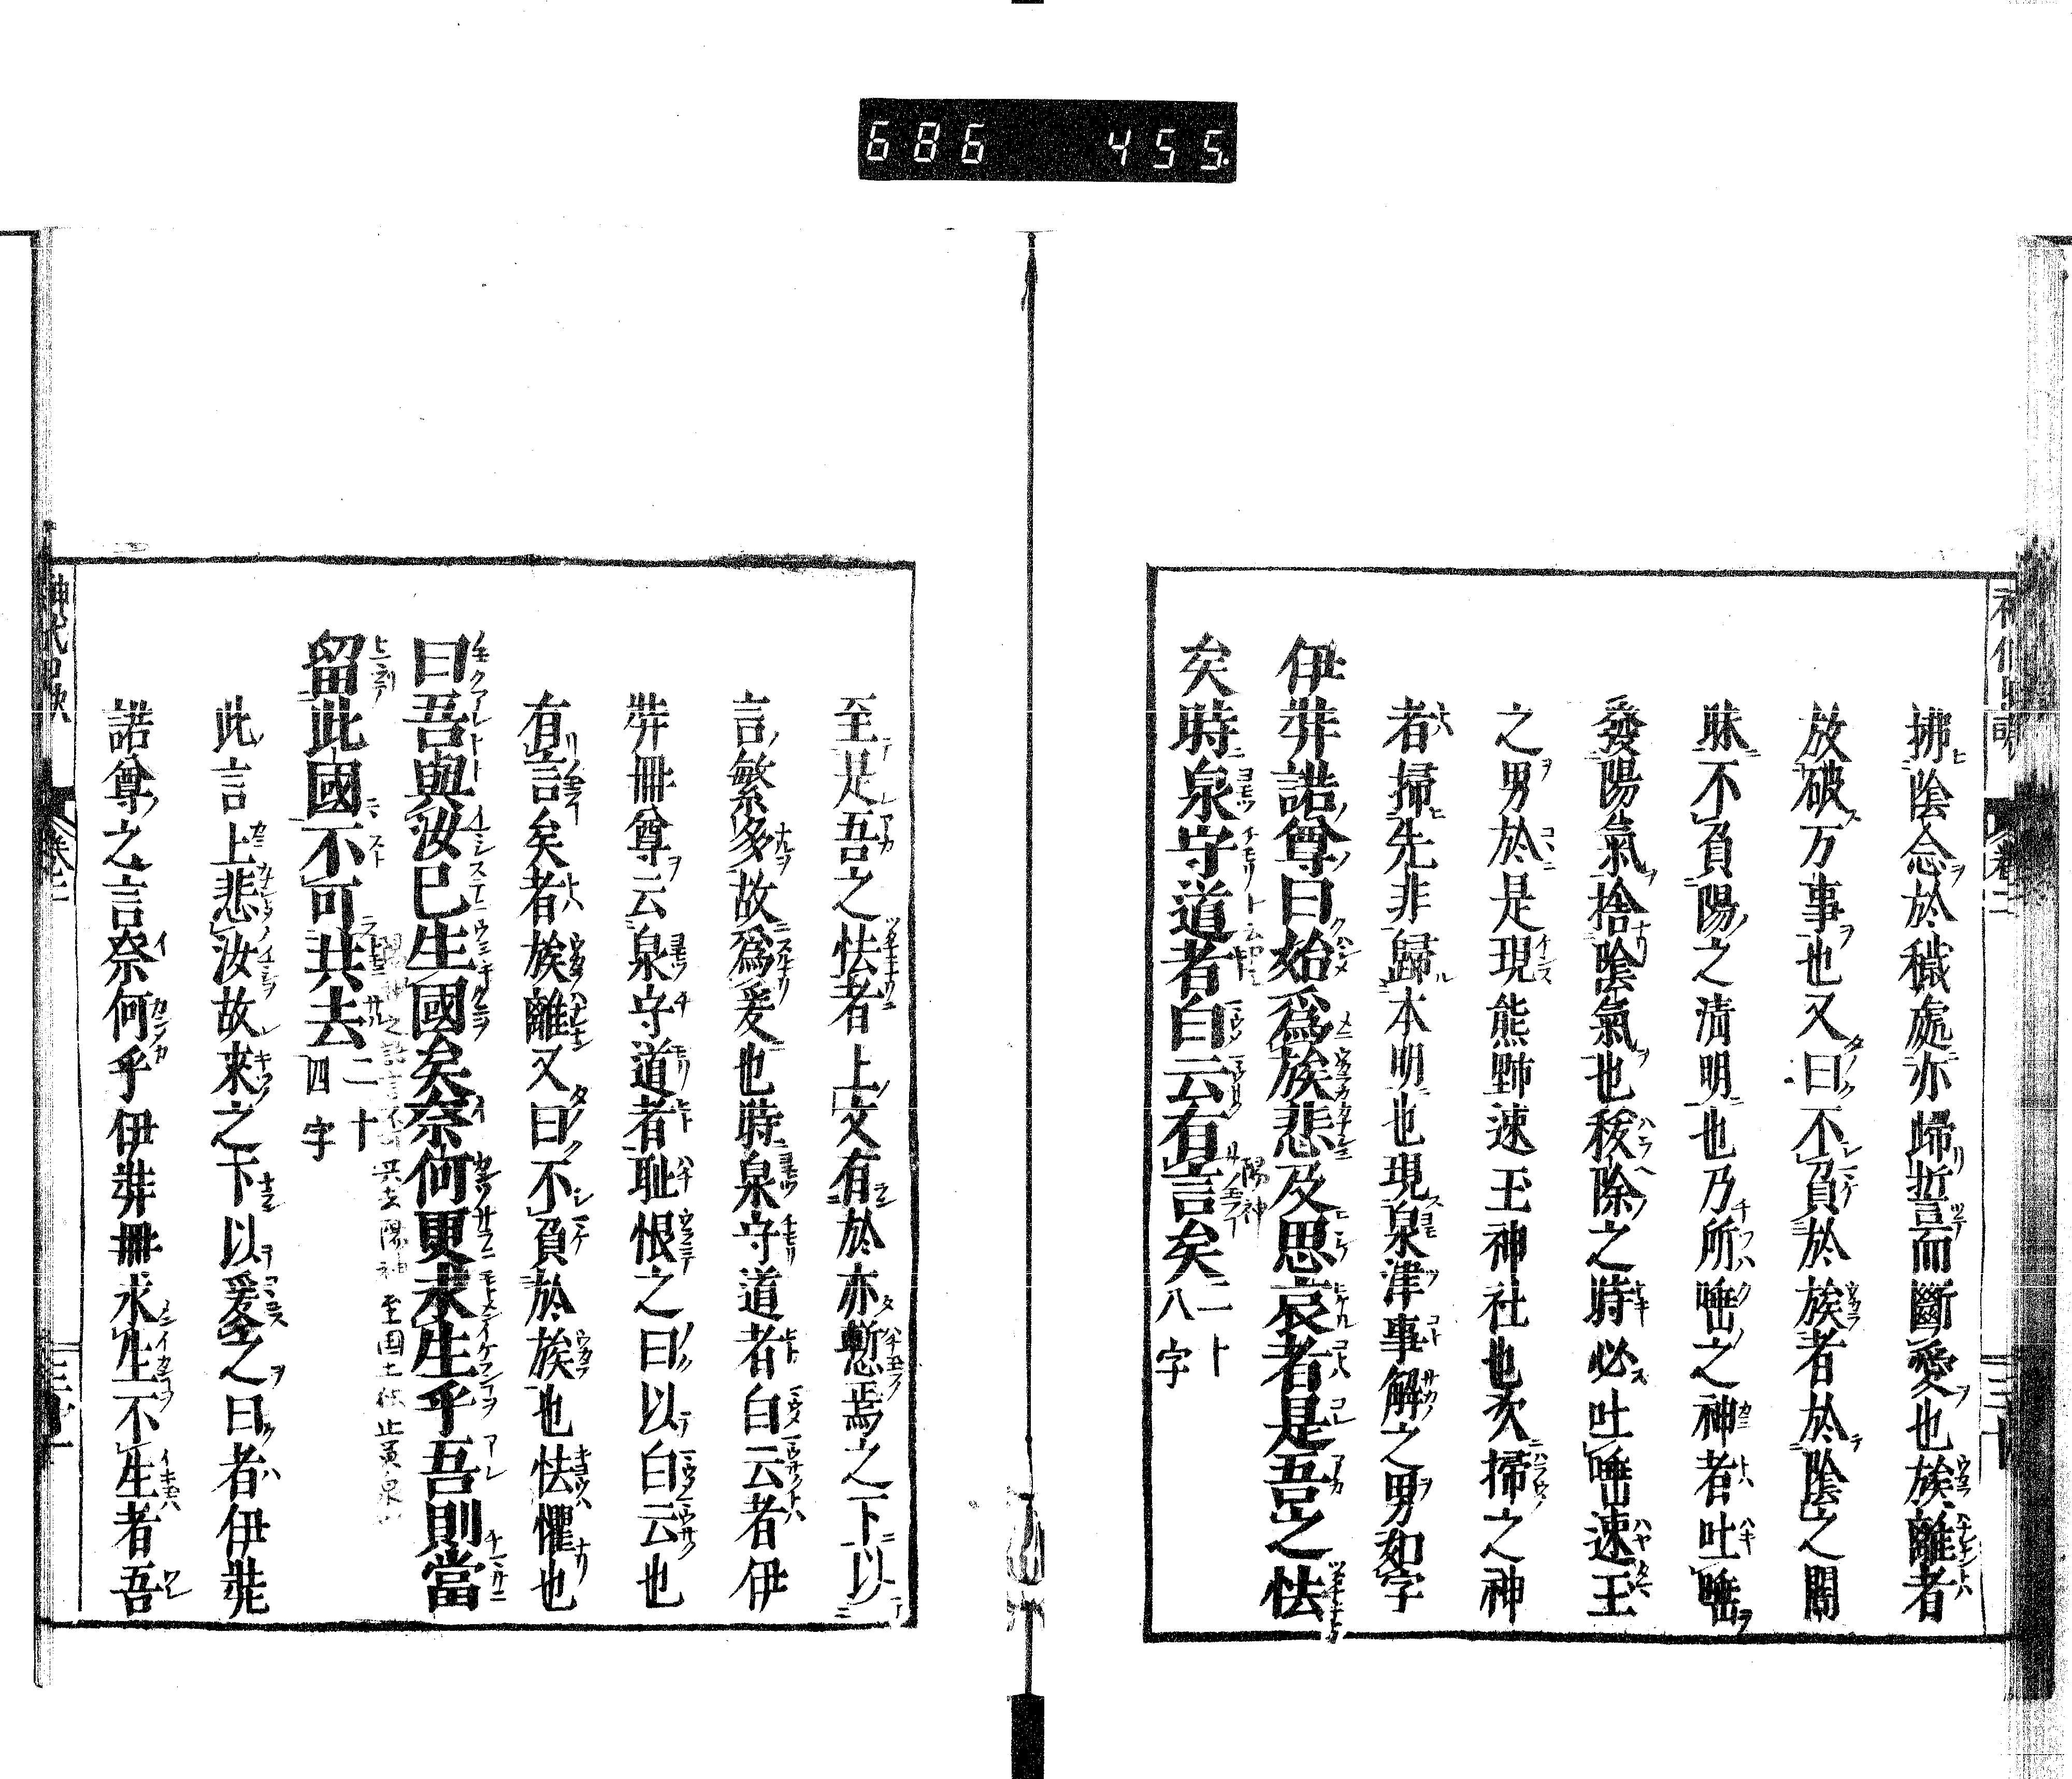 686 455
拂陰念於穢處亦歸誓而斷愛也族離者
放破万事也又曰不負於族者於陰之闇
昧不負陽之清明也乃所唾之神者吐唾
發陽氣捨陰氣也秡除之時必吐唾速玉
之男於是現熊野速玉神社也次掃之神
者掃先非歸本明也現泉津事解之男如字
伊弉諾尊曰始爲族悲及思哀者是吾之怯
矣時泉守道者白云有言矣二十八字
陽神
至是吾之怯者上文有於亦慙焉之下以
言繁多故爲爰也時泉守道者白云者伊
弉冊尊云泉守道者耻恨之曰以白云也
有言矣者族離又曰不負於族也怯懼也
曰吾與汝已生國矣奈何更求生乎吾則當
留此國不可共去二十四字
共去陽神至国土 止黄泉
此言上悲汝故來之下以爰之曰者伊弉
諾尊之言奈何乎伊弉冊求生不生者吾
卷二